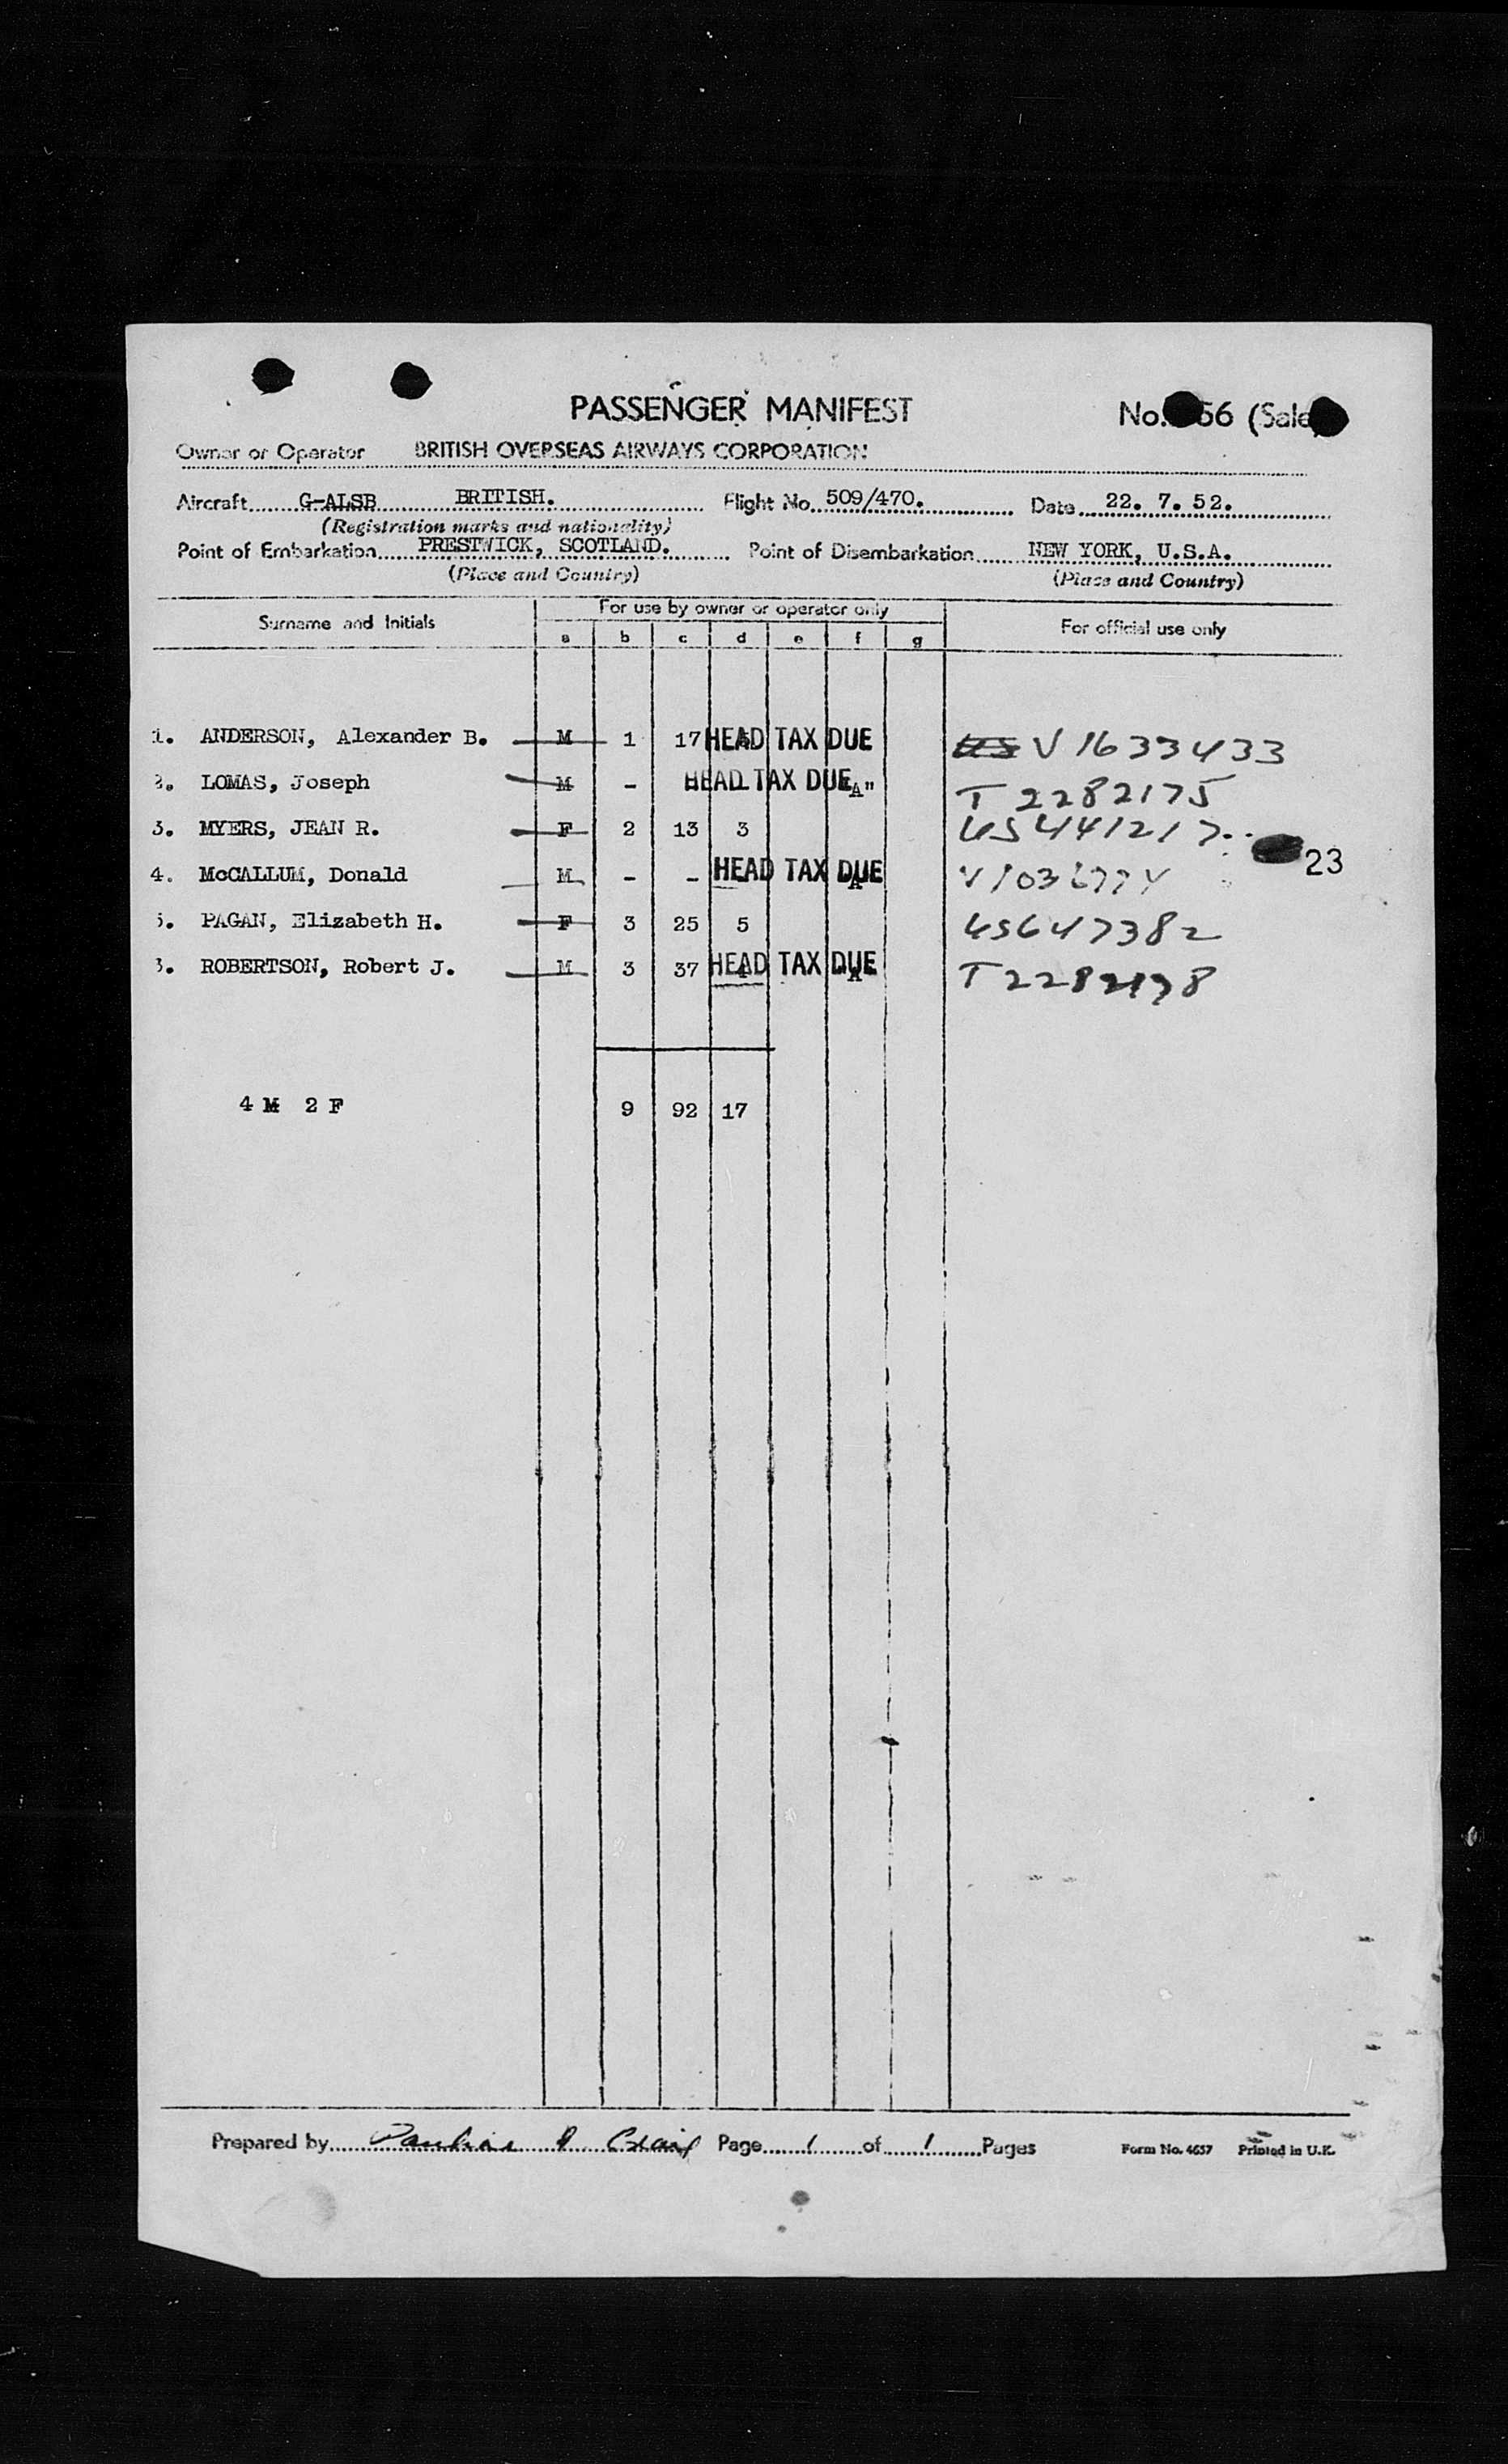 PASSENGER MANIFEST No. 56 (Sale
Owner or Operator BRITISH OVERSEAS AIRWAYS CORPORATION
Aircraft G-ALSB BRITISH. Flight No. 509/470. Date 22. 7. 52.
(Registration marks and nationality)
Point of Embarkation PRESTWICK, SCOTLAND. Point of Disembarkation NEW YORK, U.S.A.
(Place and Country) (Place and Country)
Surname and Initials For use by owner or operator only For official use only
a b c d e f g
1. ANDERSON, Alexander B. M 1 17 HEAD TAX DUE V 1633433
2. LOMAS, Joseph M - HEAD TAX DUE "A" T 2282175
3. MYERS, JEAN R. F 2 13 3
23
4. McCALLUM, Donald M - - HEAD TAX DUE
5. PAGAN, Elizabeth H. F 3 25 5
3. ROBERTSON, Robert J. M 3 37 HEAD TAX DUE
4 M 2 F 9 92 17
Prepared by Page 1 of 1 Pages Form No. 4657 Printed in U.K.